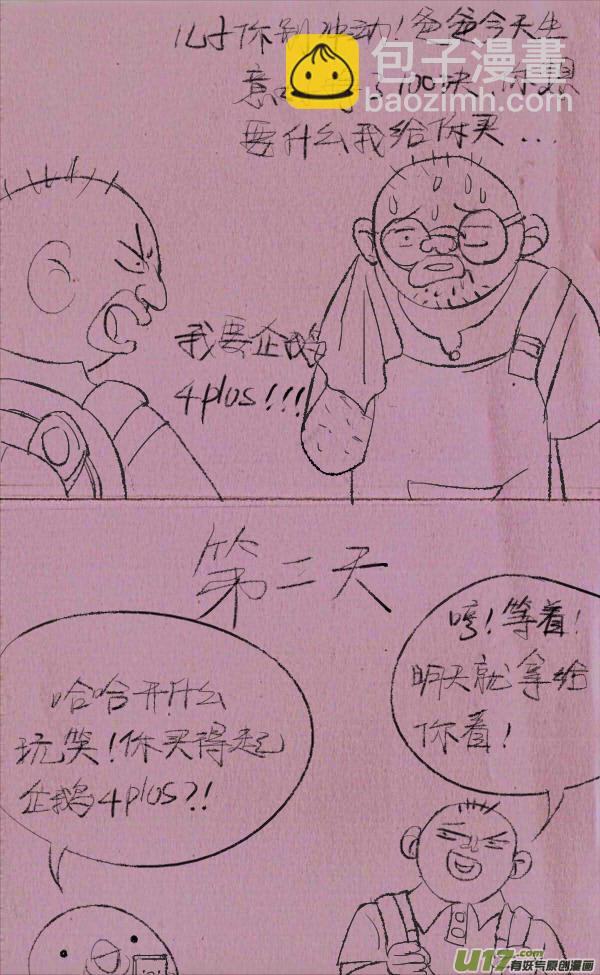 儿子你别冲动！爸爸今天生
意 了100块 你
要什么我给你买...
包子漫畫
baozimh.com
我要企鹅
4plus!!!
第二天
哼！等着！
明天就拿给
你看！
哈哈开什么
玩笑！你买得起
企鹅4plus?!
U17.com
有妖气原创漫画